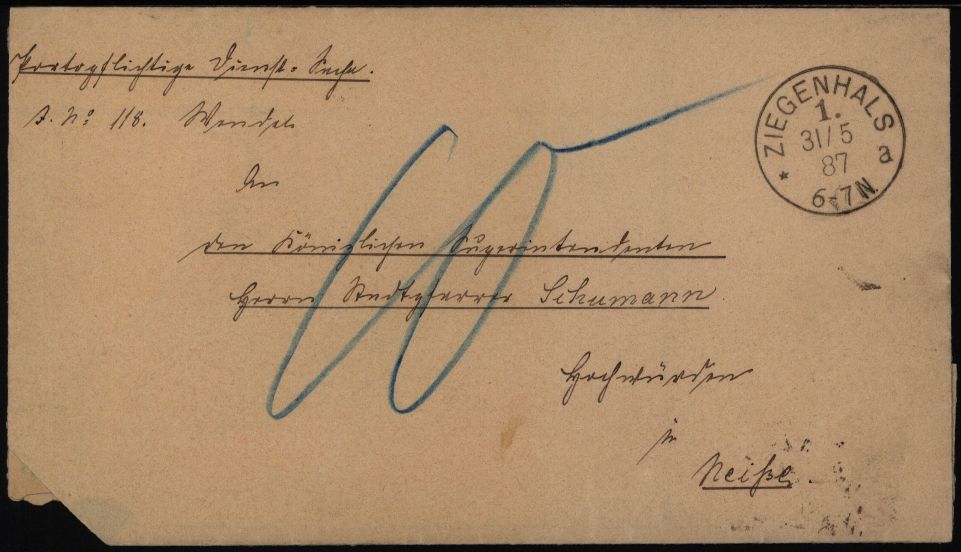 Portopflichtige Dienst-Sache.
J. No 118. Wendel
An
den Königlichen Superintendenten
Herrn Stadtpfarrer Schumann
Hochwürden
in
Neiße.
10
* ZIEGENHALS a
1.
31/5
87
6-7N.